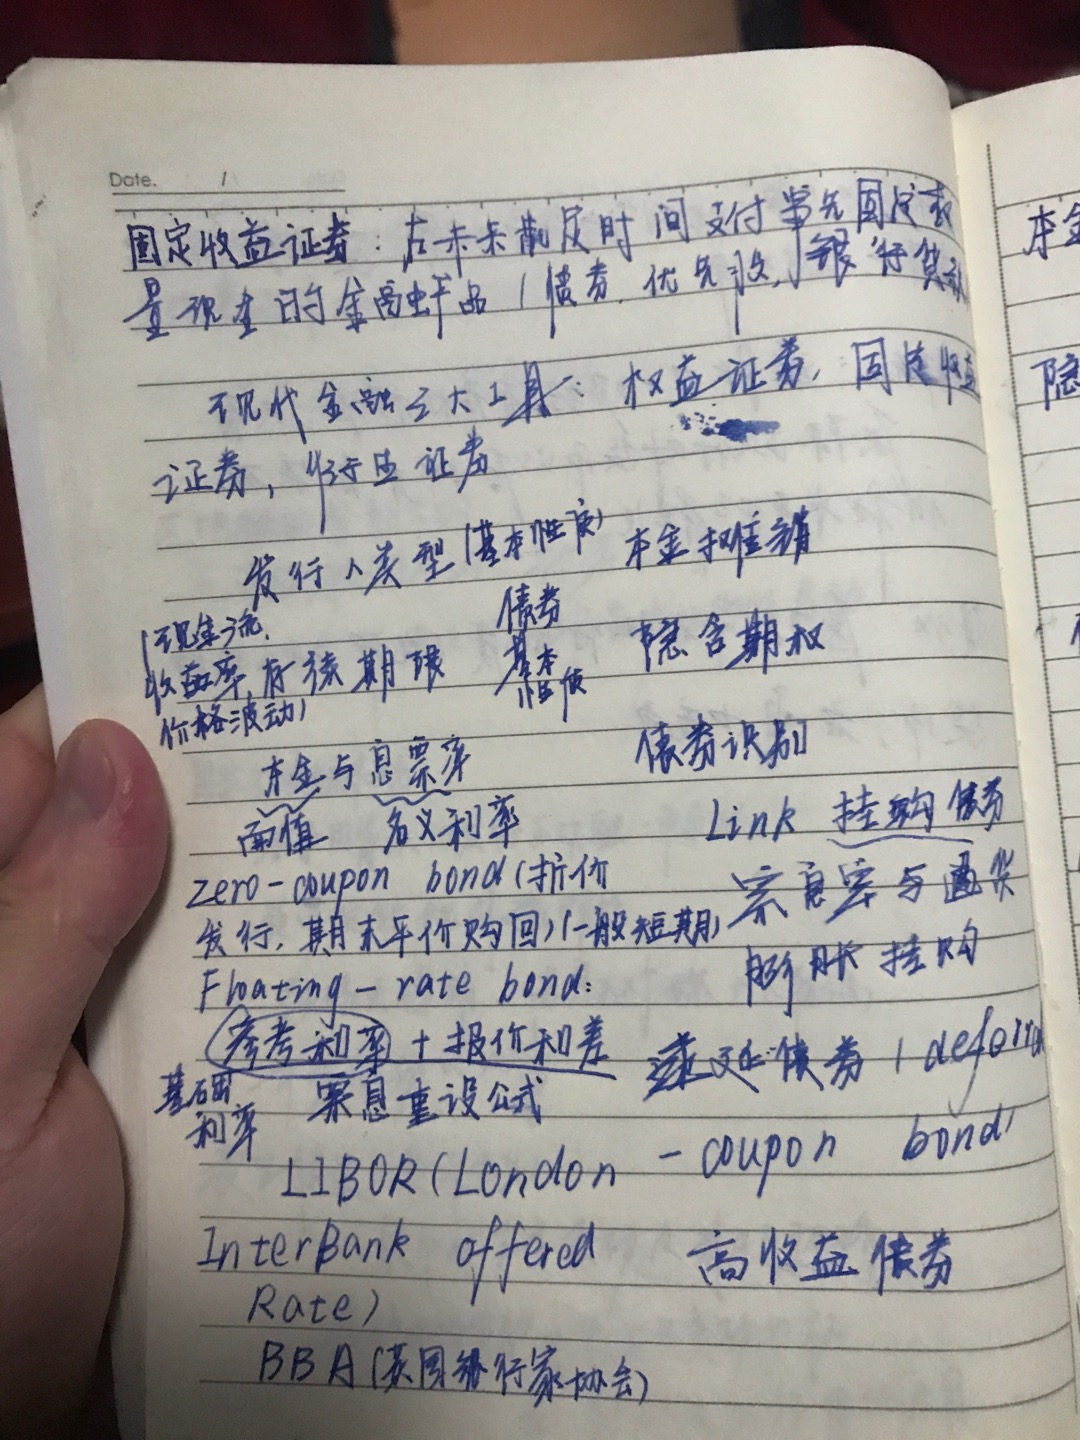 Date. /
固定收益证券：在未来特定时间支付事先固定数
量现金的金融产品（债券，优先股，银行贷款
现代金融三大工具：权益证券，固定收益
证券，衍生证券
发行人类型（基本性质） 本金摊销
（现金流，
收益率，存续期限
价格波动）
债券
基本
性质
隐含期权
本金与息票率 债券识别
面值 名义利率 Link 挂购债券
zero-coupon bond（折价 票息率与通货
发行，期末平价购回）（一般短期） 膨胀挂购
Floating-rate bond:
参考利率+报价利差 递延债券（deferred
基础
利率
票息重设公式
-coupon bond）
LIBOR（London
InterBank offered 高收益债券
Rate）
BBA（英国银行家协会）
本金
隐